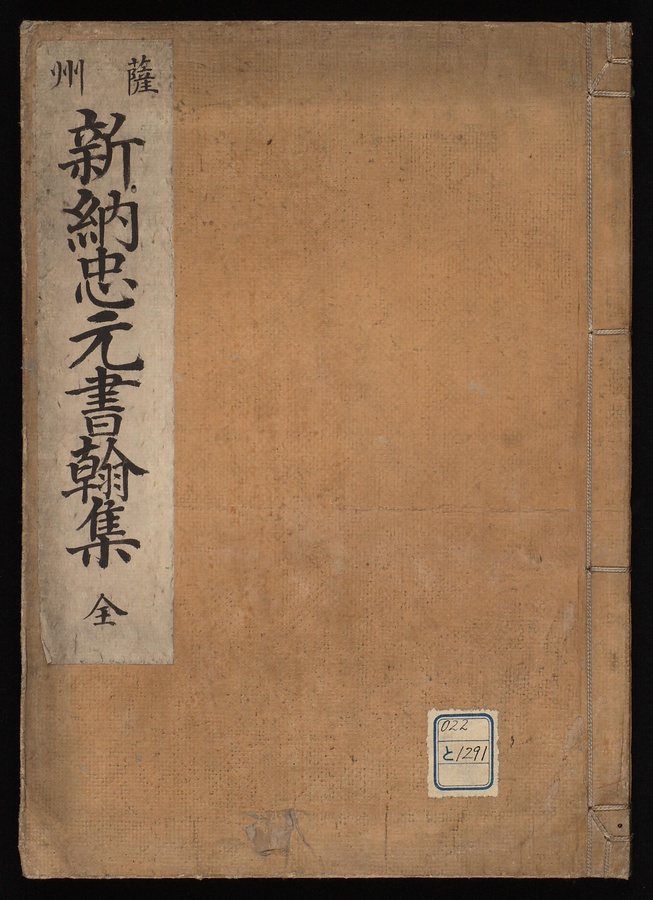 薩州
新納忠元書翰集 全
022
と1291